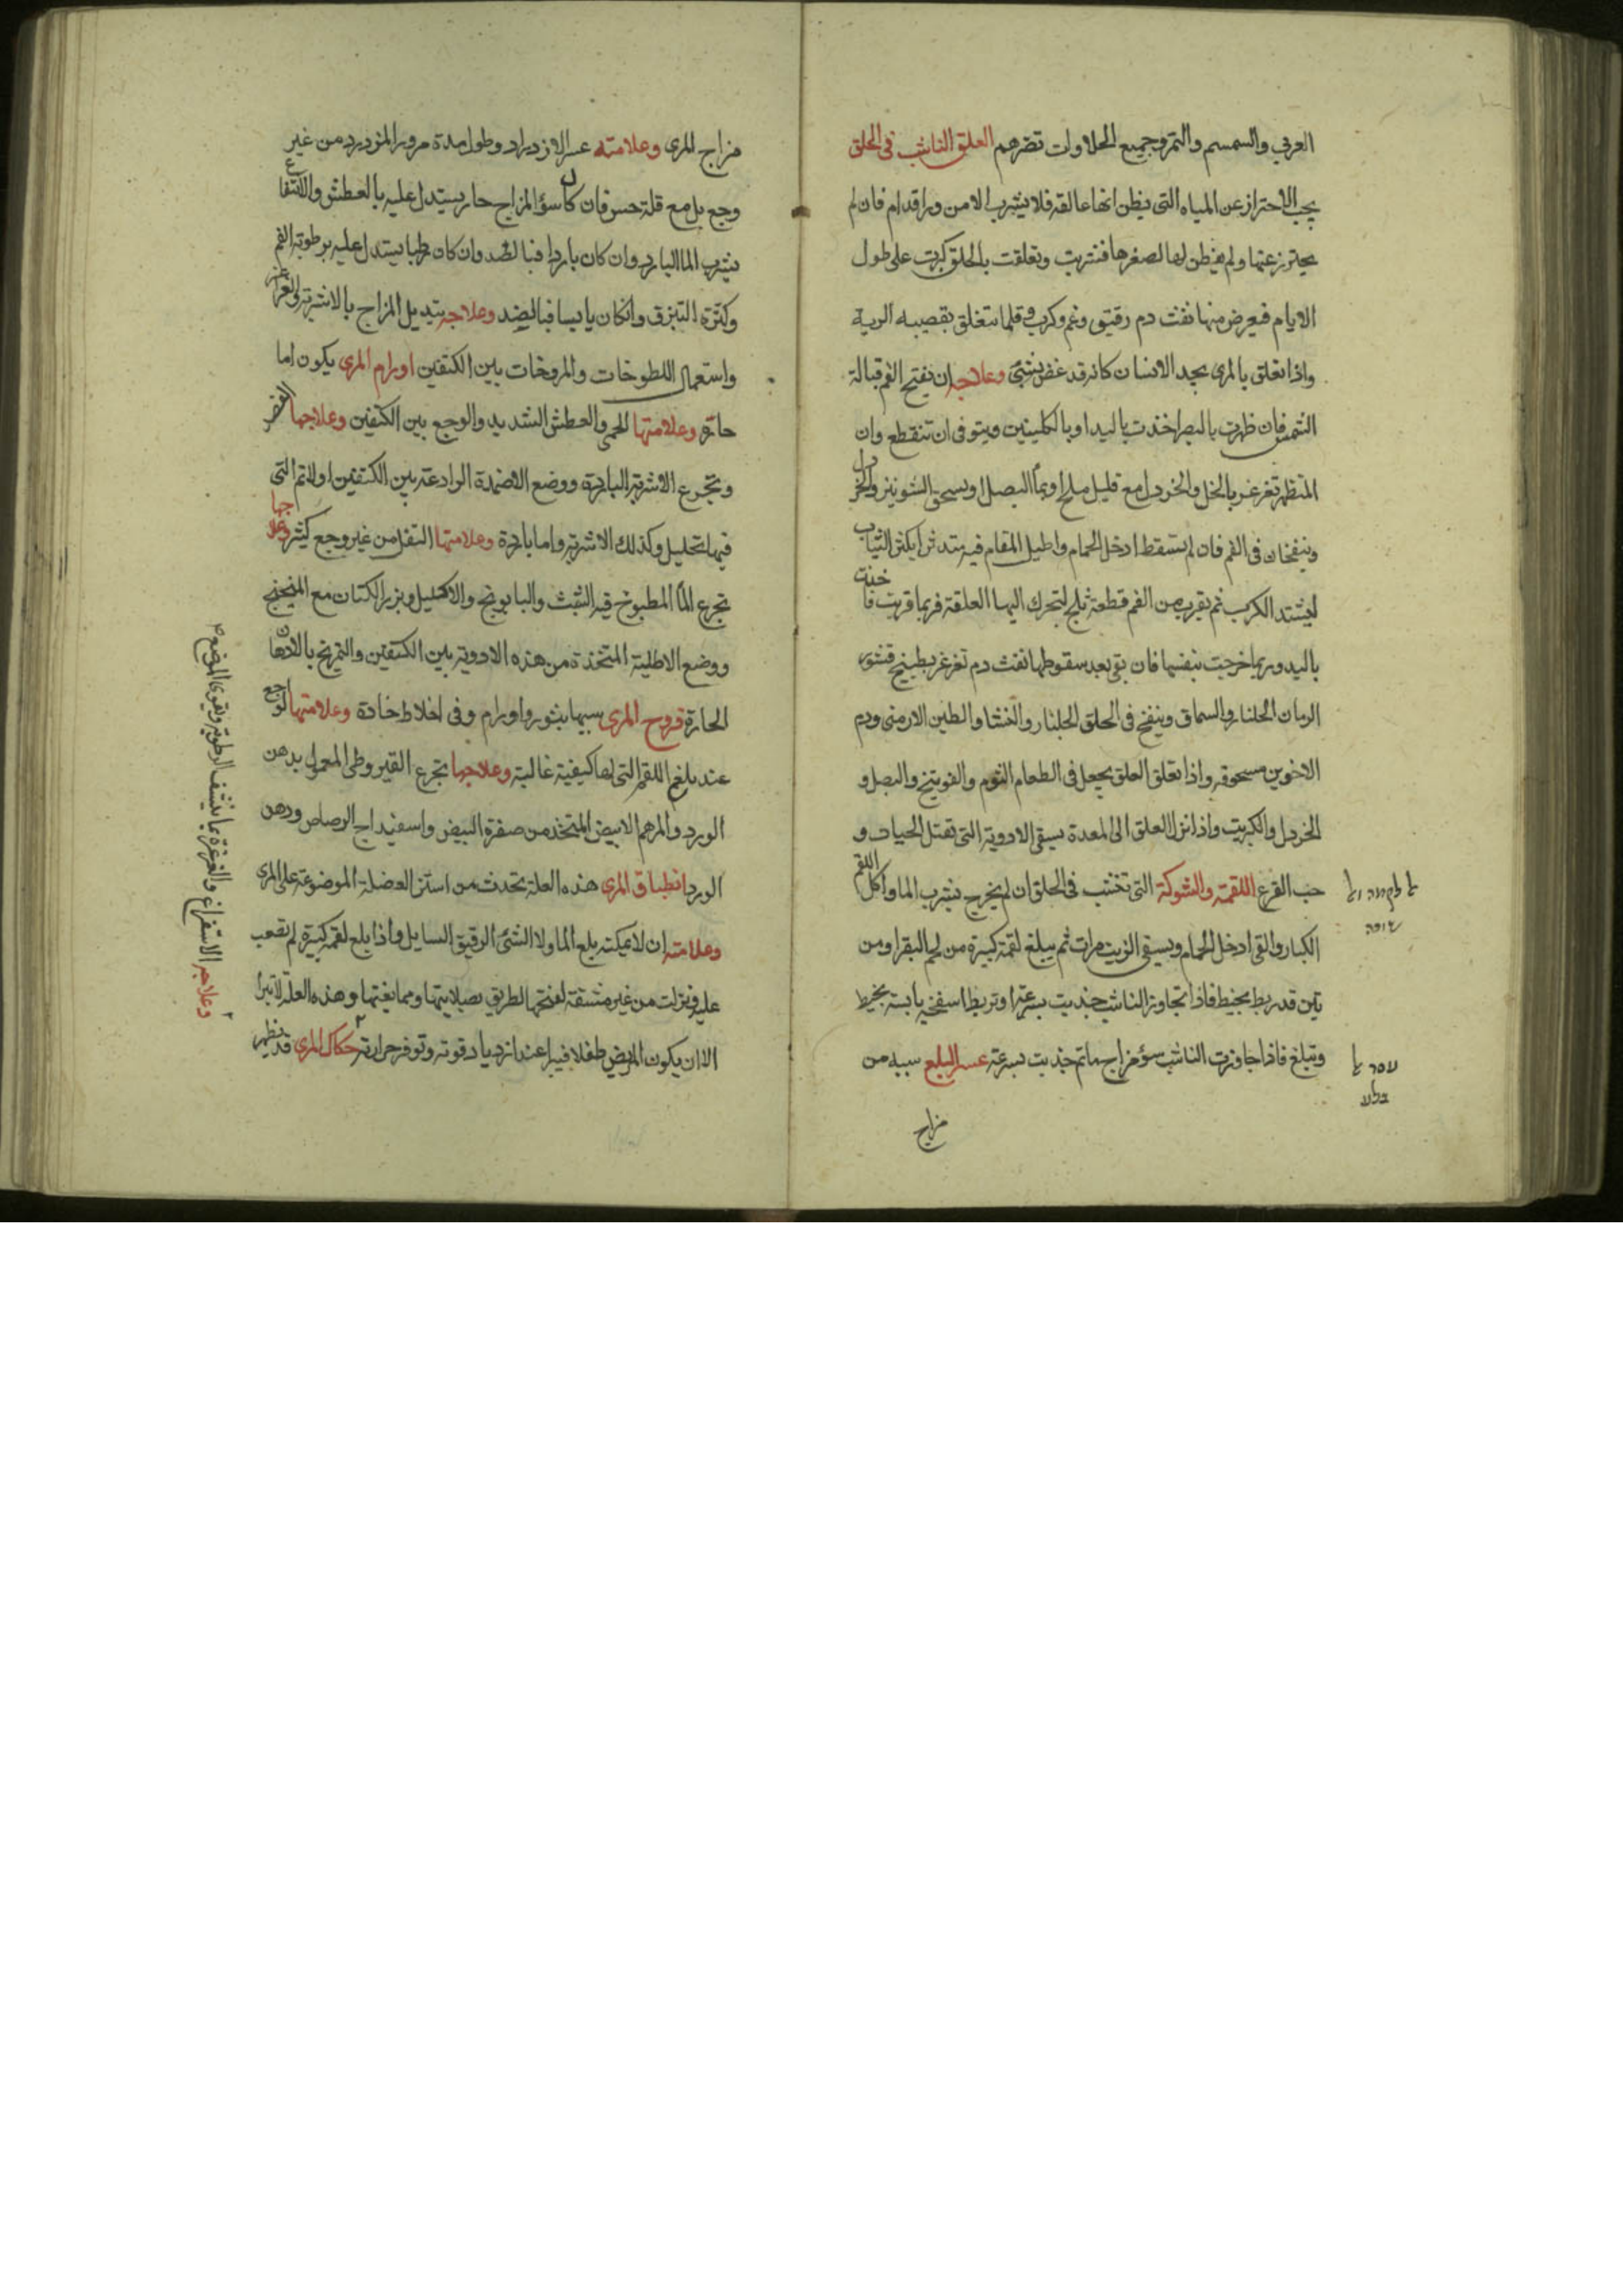 العربي والسمسم والتمر وجميع الحلاوات تضرهم العلق الناشب فى الحلق
يجب الاحتراز عن المياه التى يظن انها عالقه فلا يشرب الا من ورا قدام فان لم
يحترز عنها ولم يفطن لها لصغرها فشربت وتعلقت بالحلق كبرت على طول
الايام فيعرض منها نفث دم رقيق وغم وكرب وقلما تتعلق بقصبه الرية
واذا تعلق بالمرى يجد الانسان كانه قد غض بشئ وعلاجه ان يفتح الفم قبالة
الشمس فان ظهرت بالبصر اخذت باليد او بالكلبتين ويتوفى ان تنقطع وان
لم تظهر تغرغر بالخل والخردل مع قليل ملح او بماء البصل او يسحق الشونيز والخردل
وينفخان فى الفم فان لم تسقط ادخل الحمام واطيل المقام فيه متدثرا بكثر الثياب
ليشتد الكرب ثم يقرب من الفم قطعة ثلج لتحرك اليها العلقة فربما قربت فاخذت
باليد وربما خرجت بنفسها فان بقى بعد سقوطها نفث دم تغرغر بطبيخ قشور
الرمان الجلنار والسماق وينفخ فى الحلق الجلنار والنشا والطين الارمنى ودم
الاخوين مسحوقه واذا تعلق العلق يجعل فى الطعام الثوم والفوتنج والبصل و
الخردل والكبريت واذا نزل العلق الى المعدة يسقى الادوية التى تقتل الحيات و
حب القرع اللقمة والشوكة التى تنشب فى الحلق ان لم يخرج بشرب الما واكل اللقم
الكبار والقى ادخل الحمام ويسقى الزيت مرات ثم يبلغ لقمة كبيرة من لحم البقر او من
تين قد ربط بخيط فاذا تجاوز الناشب جذبت بسرعة او تربط اسفنجه يابسة بخيط
وتبلغ فاذا جاوزت الناشب سؤ مزاج ما ثم جذبت بسرعة عسر البلع سببه من
مزاج
مزاج المرى وعلامته عسر الازدراد وطول مدة مرور المزدرد من غير
وجع بل مع قلة حس فان كان سؤ المزاج حار يستدل عليه بالعطش والانتفاع
بشرب الما البارد وان كان باردا فبالضد وان كان رطبا يستدل عليه برطوبة الفم
وكثرة التبزق وانكان يابسا فبالضد وعلاجه بتديل المزاج بالاشربة والغراغر
واستعمال اللطوخات والمروخات بين الكتفين اورام المرى يكون اما
حارة وعلامتها الحمى والعطش الشديد والوجع بين الكتفين وعلاجها الفصد
وتجرع الاشربة الباردة ووضع الاضمدة الرادعة بين الكتفين اولا ثم التى
فيها تحليل وكذلك الاشربة واما باردة وعلامتها الثقل من غير وجع كثير وعلاجها
تجرع الما المطبوخ فيه الشبث والبابونج والاكليل وبزر الكتان مع الميبختج
ووضع الاطلية المتخذة من هذه الادوية بين الكتفين والتمريخ بالادهان
الحارة قروح المرى سببها بثور واورام وفى اخلاط حادة وعلامتها الوجع
عند بلغ اللقم التى لها كيفية غالبة وعلاجها تجرع القيروطى المعمول بدهن
الورد والمرهم الابيض المتخذ من صفرة البيض واسفيداج الرصاص ودهن
الورد انطباق المرى هذه العلة تحدث من استرخا العضلة الموضوعة على المرى
وعلامته ان لا يمكنه بلع الما ولا الشئ الرقيق السايل واذا بلع لقمة كبيرة لم تصعب
عليه ونزلت من غير مشقة لفتحها الطريق بصلابتها وممانعتها وهذه العلة لا تبرا
الا ان يكون المريض طفلا فيبرا عند ازدياد قوته وتوفر حرارته حكاك المرى قد يظهر
وعلاجه الاستفراغ والغرغرة بما ينشف الرطوبة ويقوى الموضع